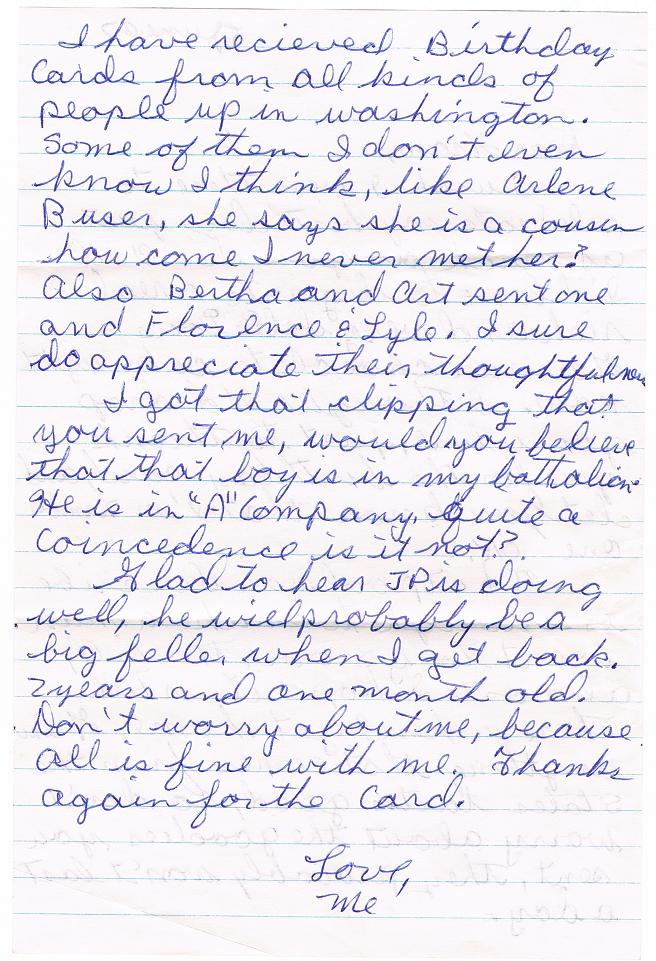 I have recieved Birthday
Cards from all kinds of
people up in washington.
Some of them I don't even
know I think, like Arlene
Buser, she says she is a cousin
how come I never met her?
Also Bertha and Art sent one
and Florence & Lyle. I sure
do appreciate their thoughtfulness
I got that clipping that
you sent me, would you believe
that that boy is in my battalion.
He is in "A" Company. Quite a
Coincedence is it not?.
Glad to hear JP is doing
well, he will probably be a
big feller when I get back.
2 years and one month old.
Don't worry about me, because
all is fine with me. Thanks
again for the Card.
Love,
Me